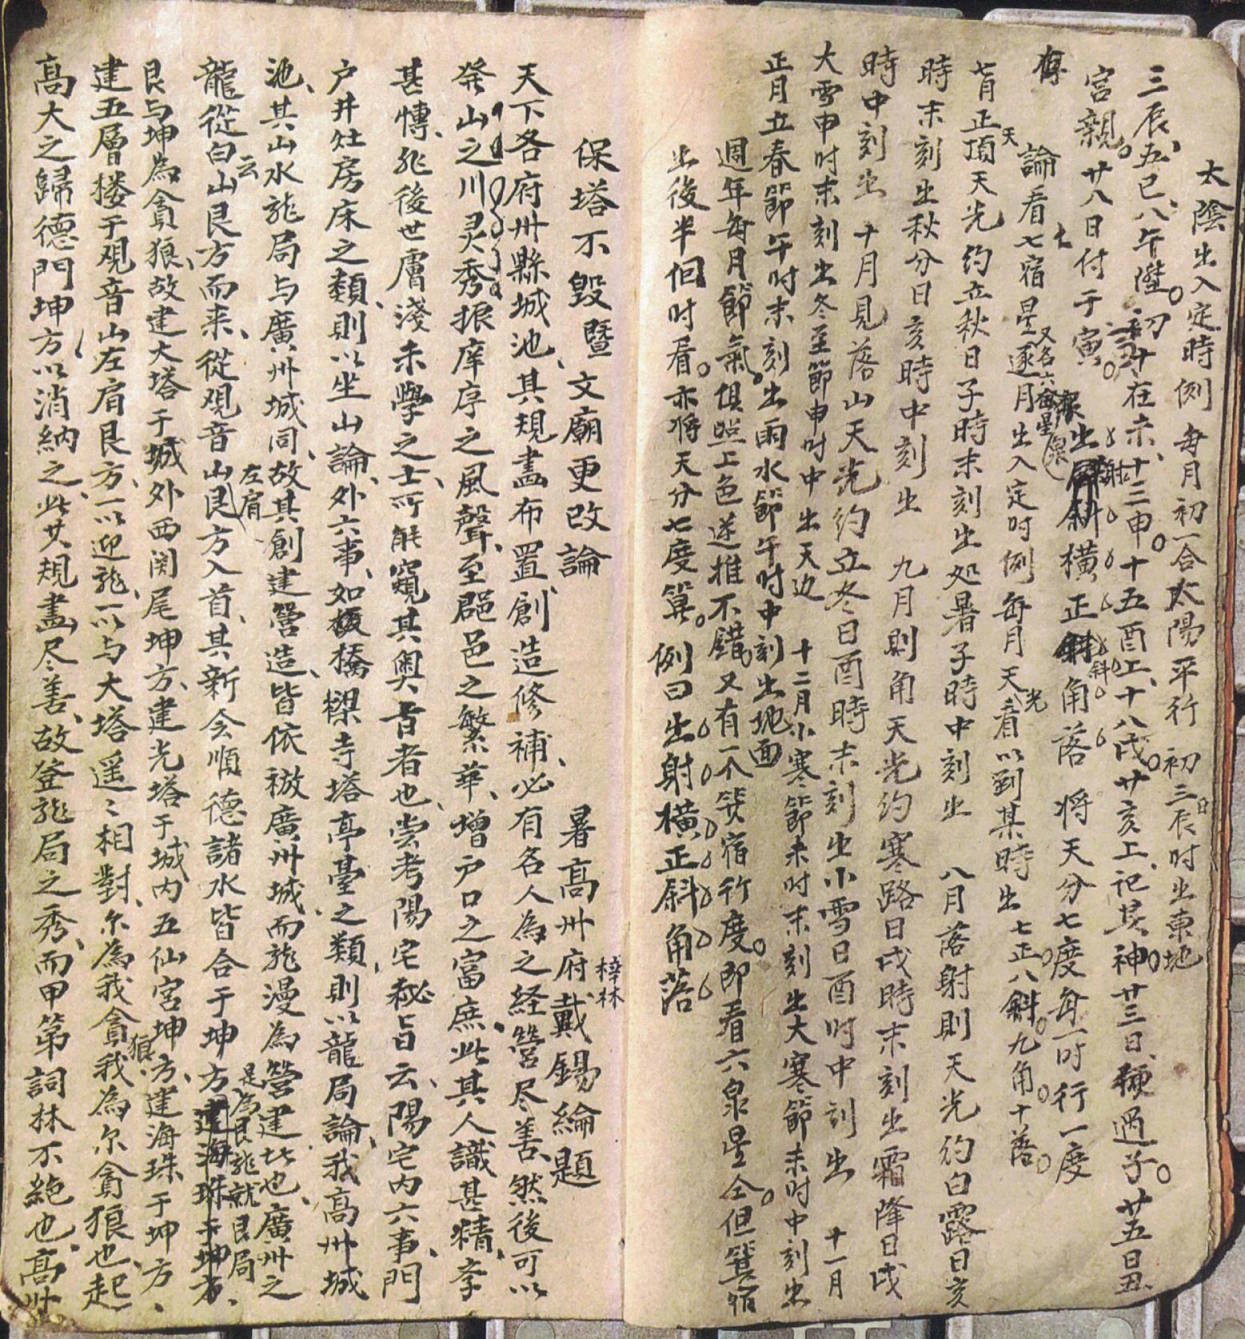 太陰出入定時例 每月初一合太陽平行 初三日辰时出東地
三辰五巳八午陞初十在未十三申十五酉上十八戌廿亥上記其神廿三日極過子廿五日丑
宮親廿八日付于寅
論看七宿星逐月出入定时例每月天光看以到某時出 七正八斜九角十落
又名六
出射斜橫正斜角落 将天分七度每一时行一度
七月正頂天光約立秋日子時末刻出処暑子時中刻出 八月落射則天光約白露日亥
時末刻出秋分日亥時中刻出 九月則角天光約寒路日戌時末刻出霜降日戌
時中刻出 十月見落山天光約立冬日酉時末刻出小雪日酉时中刻出 十一月
大雪申时末刻出冬至節申时中出天边 十二月小寒節未时末刻出大寒節未时中刻出
正月立春節午时末刻出雨水節午时中刻出地面
週年每月節氣俱照上色遂推不錯又有一个箕宿行度即看六泉星仝但箕宿
出後半個时看亦将天分七度算 例曰出射橫正斜角落
保塔不毀暨文廟更改論 暑高州府戴錫綸題
梓林
天下各府州縣城池其規畫布置創造修補必有名人為之経營尽善然後可以
發山之川灵秀振庠序之風聲至郡邑之繁華增户口之富庶此其人識甚精孝
甚慱非後世膚淺未學之士所能窺其奧旨者也尝考陽宅秘旨云陽宅内六事門
户井灶房床之類則以坐山論外六事如橋樑寺塔亭臺之類則以龍局論我高州城
池其山水龍局与廣州城同故其創建營造皆依倣廣州城而龍漫為營建比也廣州之
左肩
是為艮龍就艮局
龍從白云山艮方而来從观音山艮方入首其新会順德諸水皆合于坤方建海珠于坤方
艮与坤為貪狼故建大塔于城外西関尾坤方建光塔于城内五仙宮坤方建海珠于坤方
建五層楼于观音山左肩艮方一以迎龍一以与大塔遥々相對尔為我貪狼我為尔貪狼也起
高大之歸德門坤方以消納之此其規畫尽善故登龍局之秀而甲第詞林不絶也高州